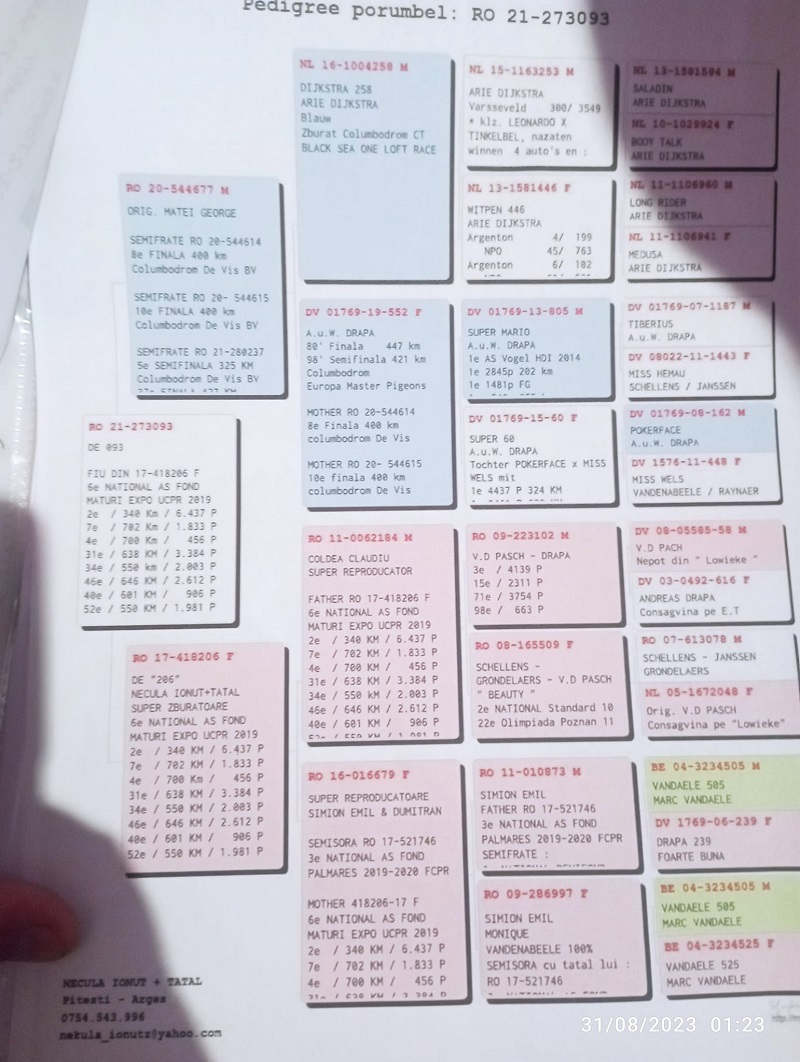 Pedigree porumbel: RO 21-273093
RO 21-273093
DE 093
FIU DIN 17-418206 F
6e NATIONAL AS FOND
MATURI EXPO UCPR 2019
2e / 340 Km / 6.437 P
7e / 702 Km / 1.833 P
4e / 700 Km / 456 P
31e / 638 KM / 3.384 P
34e / 550 km / 2.003 P
46e / 646 KM / 2.612 P
40e / 601 KM / 906 P
52e / 550 KM / 1.981 P
RO 20-544677 M
ORIG. MATEI GEORGE
SEMIFRATE RO 20-544614
8e FINALA 400 km
Columbodrom De Vis BV
SEMIFRATE RO 20- 544615
10e FINALA 400 km
Columbodrom De Vis BV
SEMIFRATE RO 21-280237
5e SEMIFINALA 325 KM
Columbodrom De Vis BV
RO 17-418206 F
DE "206"
NECULA IONUT+TATAL
SUPER ZBURATOARE
6e NATIONAL AS FOND
MATURI EXPO UCPR 2019
2e / 340 KM / 6.437 P
7e / 702 KM / 1.833 P
4e / 700 Km / 456 P
31e / 638 KM / 3.384 P
34e / 550 KM / 2.003 P
46e / 646 KM / 2.612 P
40e / 601 KM / 906 P
52e / 550 KM / 1.981 P
NL 16-1004258 M
DIJKSTRA 258
ARIE DIJKSTRA
Blauw
Zburat Columbodrom CT
BLACK SEA ONE LOFT RACE
DV 01769-19-552 F
A.u.W. DRAPA
80' Finala 447 km
98' Semifinala 421 km
Columbodrom
Europa Master Pigeons
MOTHER RO 20-544614
8e Finala 400 km
columbodrom De Vis
MOTHER RO 20- 544615
10e finala 400 km
columbodrom De Vis
RO 11-0062184 M
COLDEA CLAUDIU
SUPER REPRODUCATOR
FATHER RO 17-418206 F
6e NATIONAL AS FOND
MATURI EXPO UCPR 2019
2e / 340 KM / 6.437 P
7e / 702 KM / 1.833 P
4e / 700 KM / 456 P
31e / 638 KM / 3.384 P
34e / 550 KM / 2.003 P
46e / 646 KM / 2.612 P
40e / 601 KM / 906 P
RO 16-016679 F
SUPER REPRODUCATOARE
SIMION EMIL & DUMITRAN
SEMISORA RO 17-521746
3e NATIONAL AS FOND
PALMARES 2019-2020 FCPR
MOTHER 418206-17 F
6e NATIONAL AS FOND
MATURI EXPO UCPR 2019
2e / 340 KM / 6.437 P
7e / 702 KM / 1.833 P
4e / 700 KM / 456 P
NL 15-1163253 M
ARIE DIJKSTRA
Varsseveld 300/ 3549
* klz. LEONARDO X
TINKELBEL, nazaten
winnen 4 auto's en :
NL 13-1581446 F
WITPEN 446
ARIE DIJKSTRA
Argenton 4/ 199
NPO 45/ 763
Argenton 6/ 102
DV 01769-13-805 M
SUPER MARIO
A.u.W. DRAPA
1e AS Vogel HDI 2014
1e 2845p 202 km
1e 1481p FG
DV 01769-15-60 F
SUPER 60
A.u.W. DRAPA
Tochter POKERFACE x MISS
WELS mit
1e 4437 P 324 KM
RO 09-223102 M
V.D PASCH - DRAPA
3e / 4139 P
15e / 2311 P
71e / 3754 P
98e / 663 P
RO 08-165509 F
SCHELLENS -
GRONDELAERS - V.D PASCH
" BEAUTY "
2e NATIONAL Standard 10
22e Olimpiada Poznan 11
RO 11-010873 M
SIMION EMIL
FATHER RO 17-521746
3e NATIONAL AS FOND
PALMARES 2019-2020 FCPR
SEMIFRATE :
RO 09-286997 F
SIMION EMIL
MONIQUE
VANDENABEELE 100%
SEMISORA cu tatal lui :
RO 17-521746
NL 13-1581594 M
SALADIN
ARIE DIJKSTRA
NL 10-1029924 F
BODY TALK
ARIE DIJKSTRA
NL 11-1106960 M
LONG RIDER
ARIE DIJKSTRA
NL 11-1106941 F
MEDUSA
ARIE DIJKSTRA
DV 01769-07-1187 M
TIBERIUS
A.u.W. DRAPA
DV 08022-11-1443 F
MISS HEMAU
SCHELLENS / JANSSEN
DV 01769-08-162 M
POKERFACE
A.u.W. DRAPA
DV 1576-11-448 F
MISS WELS
VANDENABEELE / RAYNAER
DV 08-05585-58 M
V.D PACH
Nepot din " Lowieke "
DV 03-0492-616 F
ANDREAS DRAPA
Consagvina pe E.T
RO 07-613078 M
SCHELLENS - JANSSEN
GRONDELAERS
NL 05-1672048 F
Orig. V.D PASCH
Consagvina pe "Lowieke"
BE 04-3234505 M
VANDAELE 505
MARC VANDAELE
DV 1769-06-239 F
DRAPA 239
FOARTE BUNA
BE 04-3234505 M
VANDAELE 505
MARC VANDAELE
BE 04-3234525 F
VANDAELE 525
MARC VANDAELE
NECULA IONUT + TATAL
Pitesti - Arges
0754.543.996
nekula_ionutz@yahoo.com
31/08/2023 01:23